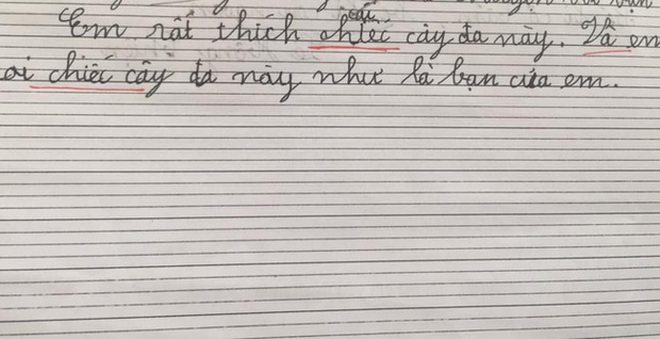 Em rất thích chiếc cây đa này. Và em
cái
oi chiếc cây đa này như là bạn của em.